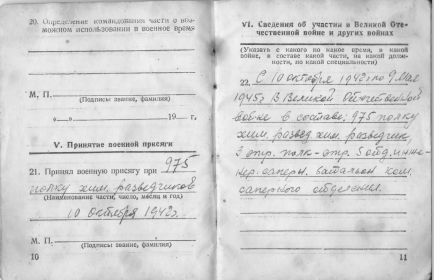 20. Определение командования части о воз-
можном использовании в военное время
М. П.
(Подписы звание, фамилия)
„—“ 19— г.
V. Принятие военной присяги
21. Принял военную присягу при 975
полку хим. разведчиков
(Наименование части, число, месяц и год)
10 октября 1942 г.
М. П.
(Подписы звание, фамилия)
10
VI. Сведения об участии в Великой Оте-
чественной войне и других войнах
(Указать с какого по какое время, в какой
войне, в составе какой части, на какой долж-
ности, по какой специальности)
22. С 10 октября 1942 г по 9 мая
1945 г. В Великой Отечественной
войне в составе: 975 полку
хим. развед. хим. разведчик,
3 отр. полк - отр. 5 отд. инже-
нер. саперн. батальон ком.
саперного отделения.
11